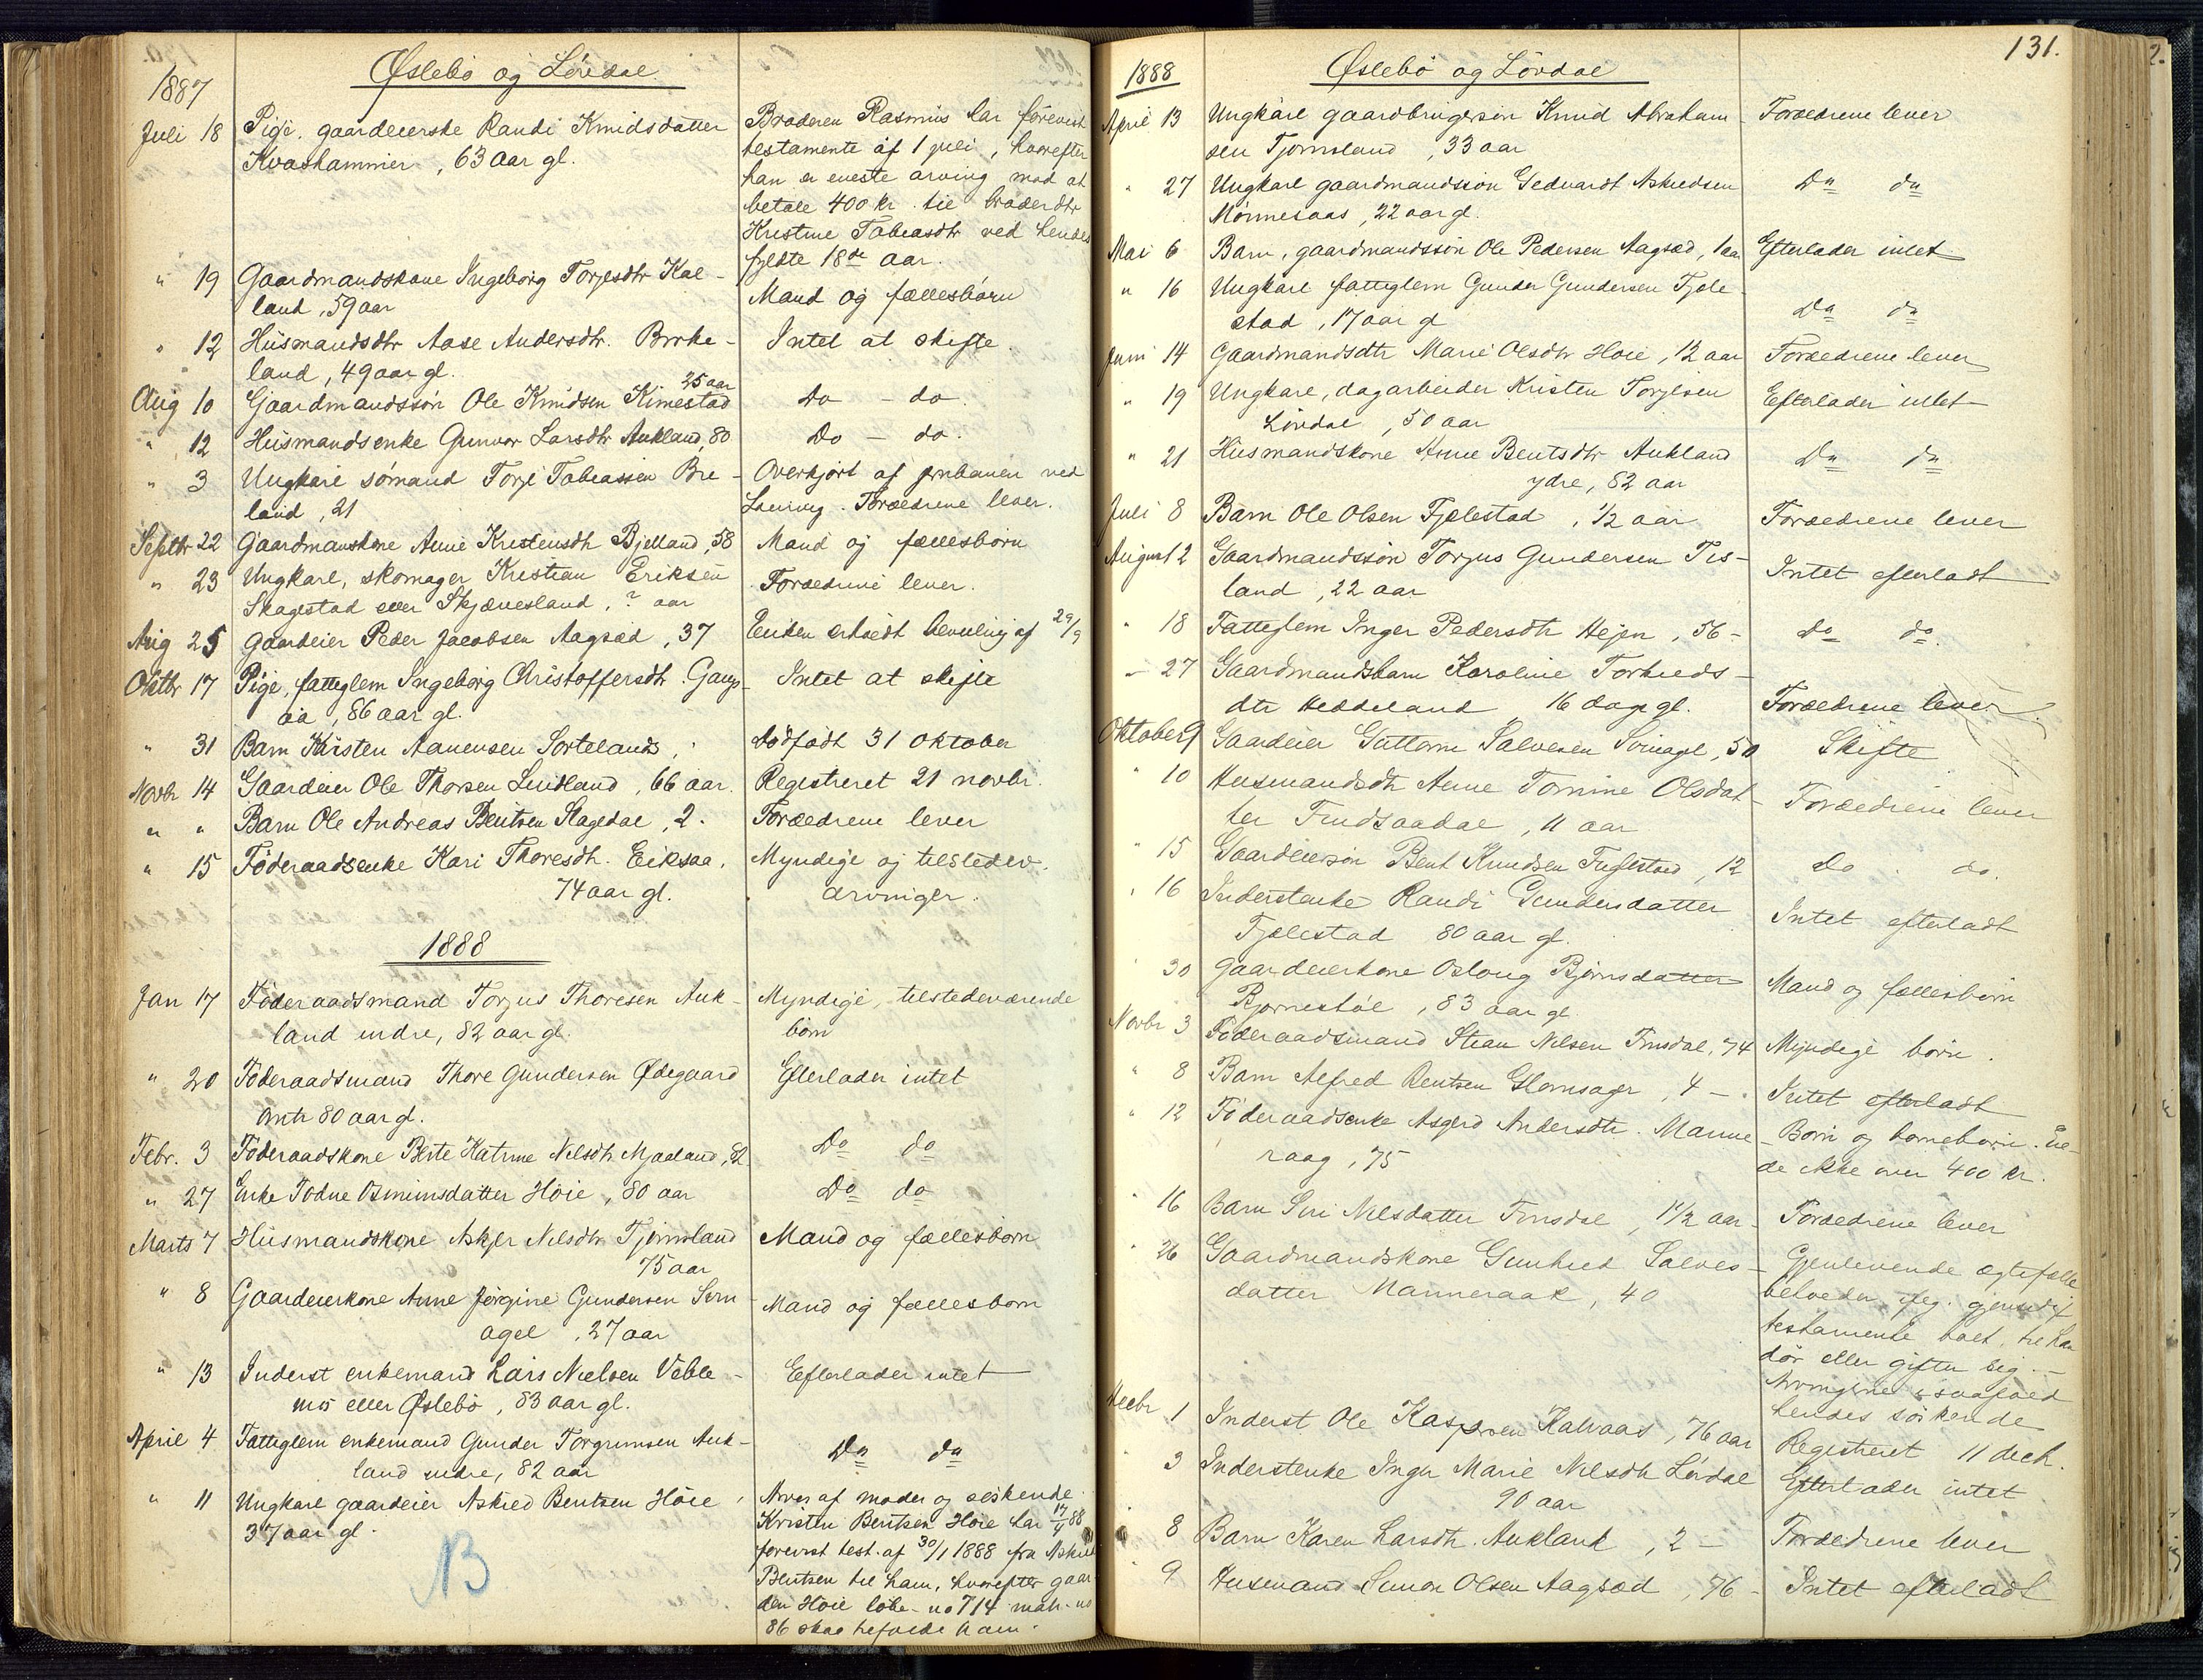 Øslebö og Lövdal
1887
Juli 18 Pige, gaardeierske Randi Knudsdatter
Kvashammer, 63 aar gl.
Broderen Rasmus har forevist
testamente af 1 juli, hvorefter
han er eneste arving mod at
betale 400 kr. til broderdtr
Kristine Tobiasdtr ved hendes
fyldte 18de aar.
" 19 Gaardmandskone Ingeborg Torjesdtr Kol-
land, 59 aar
Mand og fællesbörn
" 12 Husmandsdtr Aase Andersdtr. Birke-
land, 49 aar gl.
Intet at skifte.
25 aar
Aug 10 Gaardmandssön Ole Knudsen Kimestad
Do - do.
" 12 Husmandsenke Gunvor Larsdtr Aukland, 80
Do - do.
" 3 Ungkarl sömand Torje Tobiassen Bre-
land, 21
Overkjört af jernbanen ved
Laurvig. Forældrene lever.
Septbr 22 Gaardmanskone Anne Kristensdtr Bjelland, 58
Mand og fællesbörn
" 23 Ungkarl, skomager Kristian Eriksen
Skagestad eller Skjævesland, ? aar
Forældrene lever.
Aug 25 Gaardeier Peder Jacobsen Aagsæd, 37
Enken erholdt bevilling af 29/9
Oktbr 17 Pige, fattiglem Ingeborg Christoffersdtr. Gaup-
aa, 86 aar gl.
Intet at skifte
" 31 Barn Kirsten Aanensen Sortelands,
Dödfödt 31 oktober
Novbr 14 Gaardeier Ole Thorsen Lindland, 66 aar.
Registreret 21 novbr.
" " Barn Ole Andreas Bentsen Slagedal, 2.
Forældrene lever
" 15 Föderaadsenke Kari Thoresdtr. Eiksaa,
74 aar gl.
Myndige og tilstedev.
arvinger.
1888
Jan 17 Föderaadsmand Torjus Thoresen Auk-
land indre, 82 aar gl.
Myndige, tilstedeværende
börn
" 20 Föderaadsmand Thore Gundersen Ødegaard
omtr 80 aar gl.
Efterlader intet
Febr. 3 Föderaadskone Berte Katrine Nilsdtr Mjaaland, 82
Do do
" 27 Enke Todne Osmundsdatter Höie, 80 aar
Do do
Marts 7 Husmandskone Askjer Nilsdtr Tjomsland
75 aar
Mand og fællesbörn
" 8 Gaardeierkone Anne Jörgine Gundersen Svin-
agel, 27 aar
Mand og fællesbörn
" 13 Inderst enkemand Lars Nielsen Veble-
mo eller Øslebö, 83 aar gl.
Efterlader intet
April 4 Fattiglem enkemand Gunder Torgrimsen Auk-
land indre, 82 aar
Do do
" 11 Ungkarl gaardeier Askild Bentsen Höie,
37 aar gl.
Arves af moder og söskende.
Kristen Bentsen Höie har 17/4 88
forevist test. af 30/1 1888 fra Askild
Bentsen til ham, hvorefter gaar-
den Höie löbe-no 714 matr-no
86 skal tilfalde ham.
B
131.
1888
Øslebö og Lövdal
April 13 Ungkarl gaardbrugersön Knud Abraham-
sen Tjomsland, 33 aar
Forældrene lever
" 27 Ungkarl gaardmandssön Gedvardt Askildsen
Mönnesaas, 22 aar gl.
Do do
Mai 6 Barn, gaardmandssön Ole Pedersen Aagsæd, 1 aar
Efterlader intet
" 16 Ungkarl fattiglem Gunder Gundersen Fjele-
stad, 17 aar gl
Do do
Juni 14 Gaardmandsdtr Marie Olsdtr Höie, 12 aar
Forældrene lever
" 19 Ungkarl, dagarbeider Kristen Torjesen
Lövdal, 50 aar
Efterlader intet
" 21 Husmandskone Anne Bentsdtr Aukland
ydre, 82 aar
Do do
Juli 8 Barn Ole Olsen Fjelestad, 1/2 aar
Forældrene lever
August 2 Gaardmandssön Torjus Gundersen Tis-
land, 22 aar
Intet efterladt
" 18 Fattiglem Inger Pedersdtr Hejen, 56 -
do do.
" 27 Gaardmandsbarn Karoline Torkilds-
dtr Heddeland 16 dage gl.
Forældrene lever.
Oktober 9 Gaardeier Guttorm Salvesen Svinagl, 50
Skifte
" 10 Husmandsdtr Anne Tomine Olsdat-
ter Findsaadal, 11 aar
Forældrene lever
" 15 Gaardeiersön Bent Knudsen Fuglestved, 12
Do . do.
" 16 Inderstenke Randi Gundersdatter
Fjelestad 80 aar gl.
Intet efterladt
" 30 Gaardeierkone Oslaug Björnsdatter
Bjornestöl, 83 aar gl
Mand og fællesbörn
Novbr 3 Föderaadsmand Stean Nilsen Finsdal, 74
Myndige börn.
" 8 Barn Alfred Bentsen Glomsager, 4 -
Intet efterladt
" 12 Föderaadsenke Asgerd Andersdtr. Manne-
raag, 75
Börn og börnebörn. Eie-
de ikke over 400 kr.
" 16 Barn Siri Nilsdatter Finsdal, 1 1/2 aar
Forældrene lever
" 26 Gaardmandskone Gunhild Salves-
datter Manneraak, 40
Gjenlevende ægtefælle
beholder ifg. gjensidig
testamente boet, til han
dör eller gifter sig.
Arvingene isaafald
hendes söskende
Decbr 1 Inderst Ole Kaspersen Kalvaas, 76 aar
Registreret 11 decb.
" 3 Inderstenke Inger Marie Nilsdtr Lövdal
90 aar
Efterlader intet
" 8 Barn Karen Larsdtr. Aukland, 2 -
Forældrene lever
" 9 Husmand Simon Olsen Aagsæd, 76 -
Intet efterladt